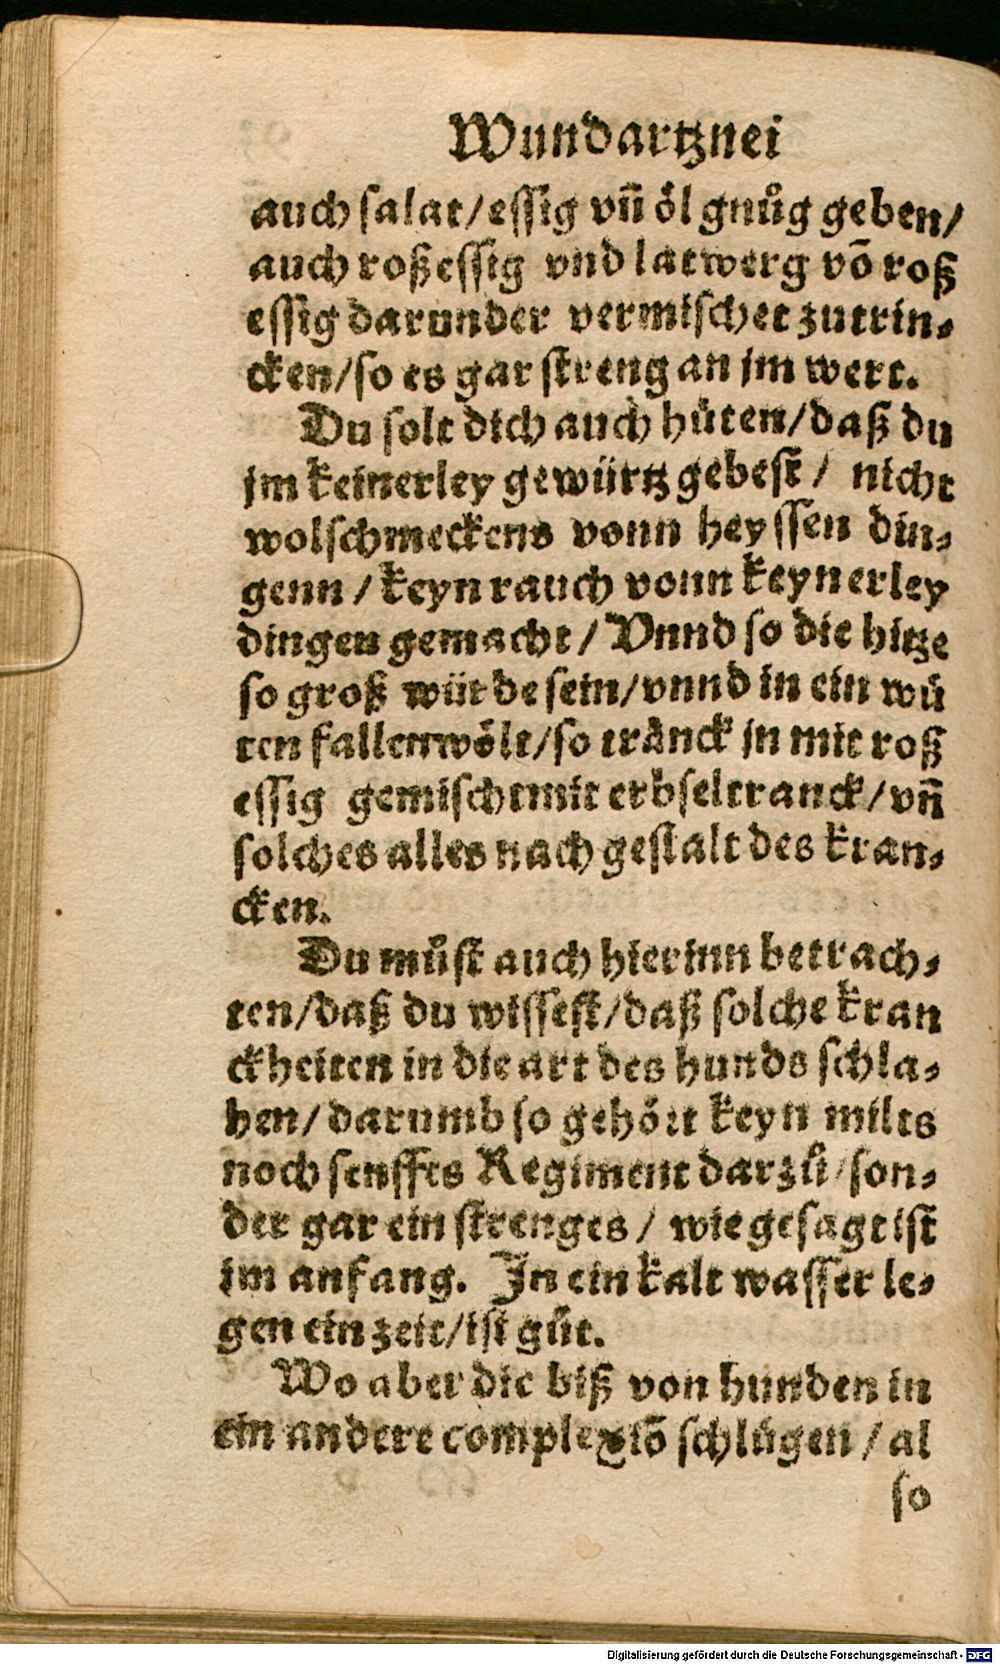 Wundartznei
auch salat/essig vñ öl gnůg geben/
auch roßessig vnd latwerg võ roß
essig darunder vermischet zutrin⸗
cken/so es gar streng an jm wert.
Du solt dich auch hüten/daß du
jm keinerley gewürtz gebest/ nicht
wolschmeckens vonn heyssen din⸗
genn/keyn rauch vonn keynerley
dingen gemacht/Vnnd so die hitze
so groß würde sein/vnnd in ein wü
ten fallen wölt/so tränck jn mit roß
essig gemischt mit erbseltranck/vñ
solches alles nach gestalt des kran⸗
cken.
Du můst auch hierinn betrach⸗
ten/daß du wissest/daß solche kran
ckheiten in die art des hunds schla⸗
hen/darumb so gehört keyn milts
noch senffts Regiment darzů/son⸗
der gar ein strenges/ wie gesagt ist
im anfang. In ein kalt wasser le⸗
gen ein zeit/ist gůt.
Wo aber die biß von hunden in
ein andere complexiõ schlůgen/al
so
Digitalisierung gefördert durch die Deutsche Forschungsgemeinschaft - DFG